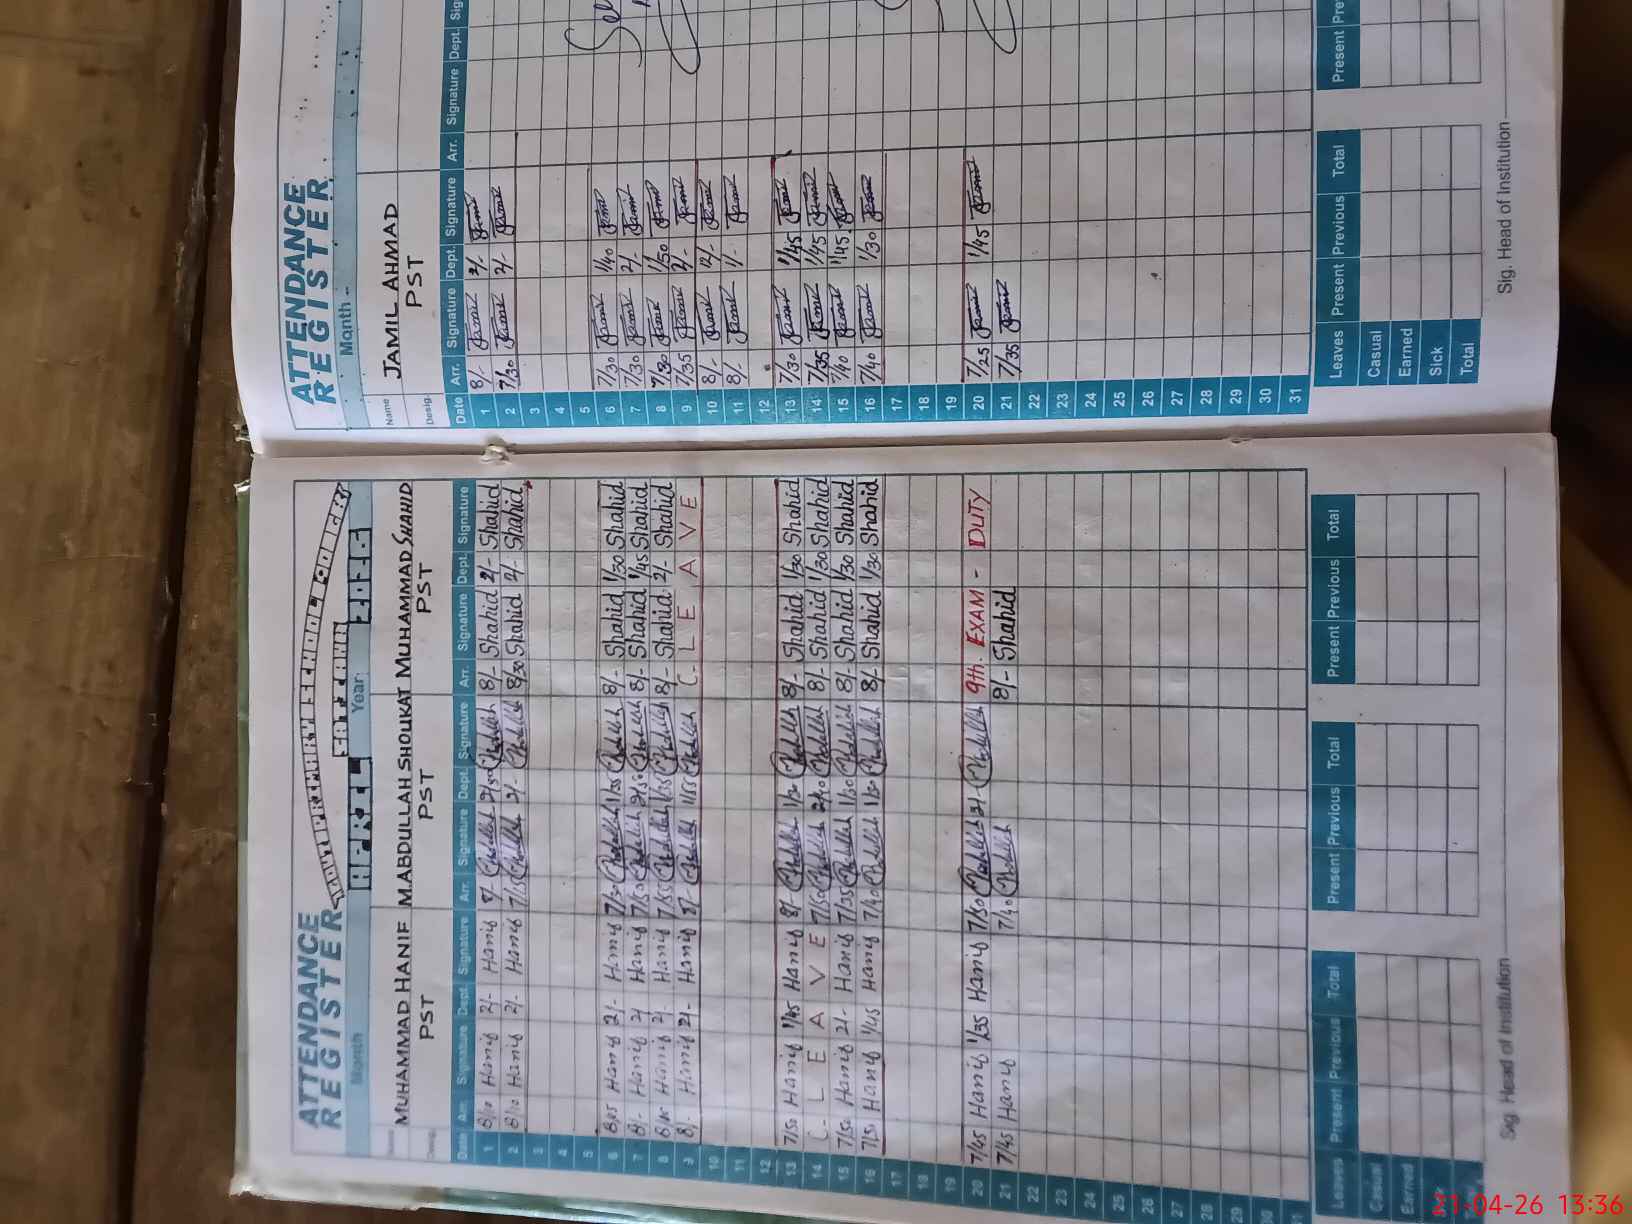 ATTENDANCE
REGISTER
GOVT PRIMARY SCHOOL
SATIANA
Month APRIL Year 2026
MUHAMMAD HANIF M.ABDULLAH SHOUKAT MUHAMMAD SHAHID
PST PST PST
Date Arr. Signature Dept. Signature Arr. Signature Dept. Signature Arr. Signature Dept. Signature
1 8/10 Hanif 2/- Hanif 8/- Abdullah Abdullah 8/- Shahid 2/- Shahid
2 8/10 Hanif 2/- Hanif 7/55 Abdullah 2/- Abdullah 8/30 Shahid 2/- Shahid
3
4
5
6 8/05 Hanif 2/- Hanif 7/50 Abdullah 1/55 Abdullah 8/- Shahid 1/30 Shahid
7 8/- Hanif 2/ Hanif 7/50 Abdullah Abdullah 8/- Shahid 1/45 Shahid
8 8/10 Hanif 2/- Hanif 7/55 Abdullah 1/55 Abdullah 8/- Shahid 2/- Shahid
9 8/- Hanif 2/- Hanif 8/- Abdullah 1/55 Abdullah C-LEAVE
10
11
12
13 7/50 Hanif 1/45 Hanif 8/- Abdullah 1/50 Abdullah 8/- Shahid 1/30 Shahid
14 C-LEAVE 7/50 Abdullah 2/10 Abdullah 8/- Shahid 1/30 Shahid
15 7/50 Hanif 2/- Hanif 7/35 Abdullah 1/50 Abdullah 8/- Shahid 1/30 Shahid
16 7/50 Hanif 1/45 Hanif 7/40 Abdullah 1/50 Abdullah 8/- Shahid 1/30 Shahid
17
18
19
20 7/45 Hanif 1/35 Hanif 7/50 Abdullah 2/- Abdullah 9th. EXAM - DUTY
21 7/45 Hanif 7/40 Abdullah 8/- Shahid
22
23
24
25
26
27
28
29
30
31
Leaves Present Previous Total Present Previous Total Present Previous Total
Casual
Earned
Sig. Head of Institution
ATTENDANCE
REGISTER
Month -
Name JAMIL AHMAD
Desig. PST
Date Arr. Signature Dept. Signature Arr. Signature Dept. Sig
1 8/- Jamil 2/- Jamil
2 7/30 Jamil 2/- Jamil
3
4
5
6 7/30 Jamil 1/40 Jamil
7 7/30 Jamil 2/- Jamil
8 7/30 Jamil 1/50 Jamil
9 7/35 Jamil 2/- Jamil
10 8/- Jamil 12/- Jamil
11 8/- Jamil 1/- Jamil
12
13 7/30 Jamil 1/45 Jamil
14 7/35 Jamil 1/45 Jamil
15 7/40 Jamil 1/45 Jamil
16 7/40 Jamil 1/30 Jamil
17
18
19
20 7/25 Jamil 1/45 Jamil
21 7/35 Jamil
22
23
24
25
26
27
28
29
30
31
Leaves Present Previous Total Present Pre
Casual
Earned
Sick
Total
Sig. Head of Institution
21-04-26 13:36